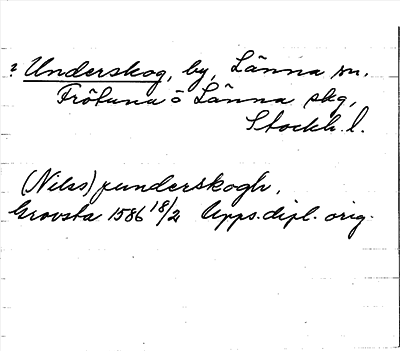 ? Underskog, by, Länna sn.
Frötuna o Länna skg,
Stockh. l.
(Nilss) punderskogh,
Grovsta 1586 18/2 Upps. dipl. orig.